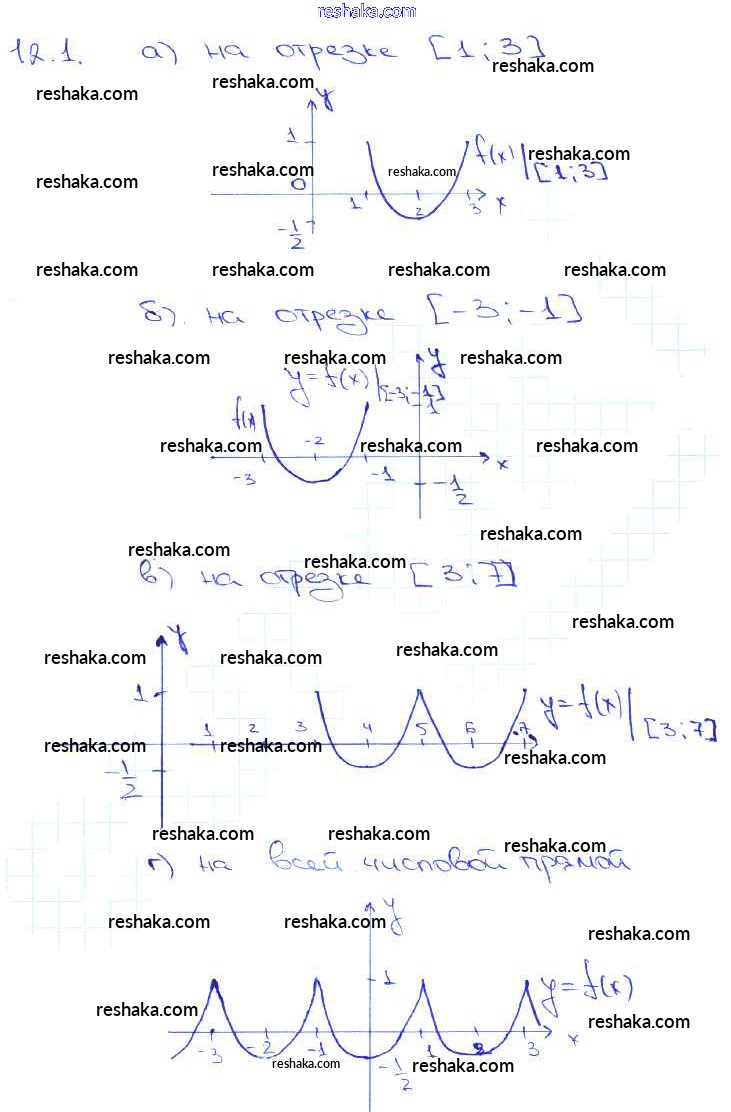 reshaka.com
12.1. а) на отрезке [1;3]
reshaka.com reshaka.com reshaka.com
y
1
reshaka.com reshaka.com reshaka.com reshaka.com f(x)|[1;3]
0 1 2 3 x
-1/2
reshaka.com reshaka.com reshaka.com reshaka.com
б). на отрезке [-3;-1]
reshaka.com reshaka.com reshaka.com
y
y=f(x)|[-3;-1]
1
f(x)
reshaka.com -2 reshaka.com reshaka.com
-3 -1 x
-1/2
reshaka.com
reshaka.com reshaka.com
в) на отрезке [3;7]
reshaka.com
y
reshaka.com reshaka.com reshaka.com
1
y=f(x)|[3;7]
1 2 3 4 5 6 7
reshaka.com reshaka.com reshaka.com
-1/2
reshaka.com reshaka.com reshaka.com
г) на всей числовой прямой
reshaka.com reshaka.com reshaka.com
y
1
y=f(x)
reshaka.com reshaka.com
-3 -2 -1 1 2 3 x
-1/2
reshaka.com reshaka.com